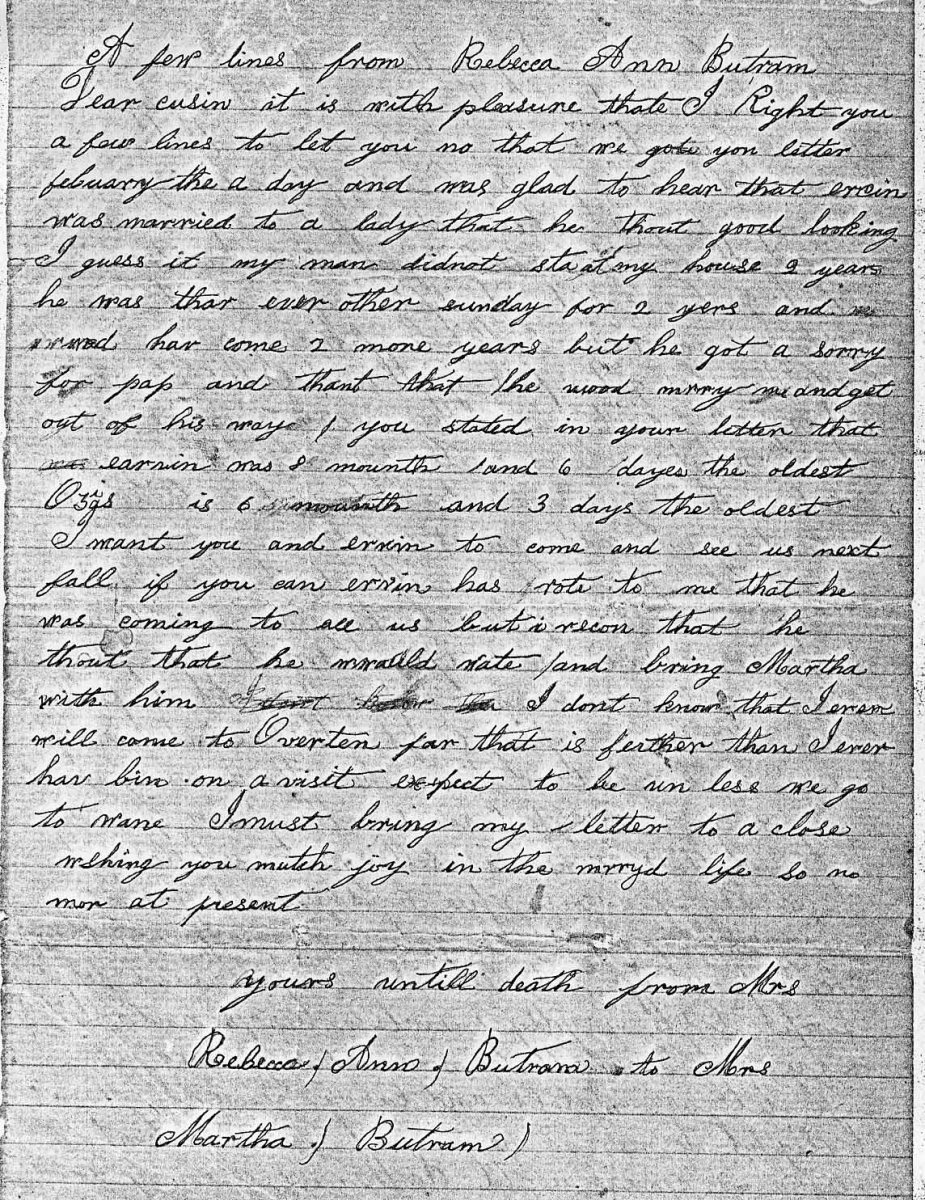 A few lines from Rebecca Ann Butram
Dear cusin it is with pleasure thate I Right you
a few lines to let you no that we gote you letter
febuarry the a day and was glad to hear that ervin
was married to a lady that he thout good looking
I guess it my man didnot sta at my house 2 years
he was thar ever other sunday for 2 yers and
har come 2 more years but he got a sorry
for pap and thant that he wood mrry me and get
out of his way / you stated in your letter that
earvin was 8 mounth / and 6 dayes the oldest
is 6 mounth and 3 days the oldest
I want you and ervin to come and see us next
fall if you can ervin has rote to me that he
was coming to see us but i recon that he
thout that he wate / and bring Martha
with him I dont know that I ever
will come to Overten far that is ferther than I ever
hav bin on a visit expect to be un less we go
to wane I must bring my letter to a close
wshing you mutch joy in the mrryd life so no
mor at present
yours untill death from Mrs
Rebecca / Ann / Butram to Mrs
Martha / Butram )